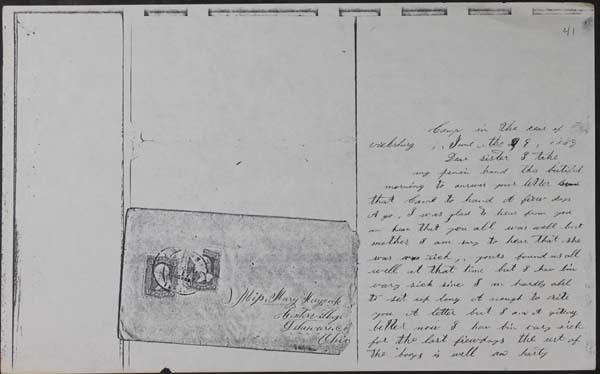 41
Camp in the rear of
vicksburg, June the 9, 1863
Dear sister I take
my pen in hand this
morning to answer your letter
that came to hand a fiew days
ago. I was glad to hear from you
an hear that you all was well but
mother I am sory to hear that she
was sick, yours found us all
well at that time but I hav bin
vary sick sinc I am hardly abl
to set up long a nough to rite
you a letter but I am giting
better now I hav bin vary sick
for the last fiew days the rest of
the boys is well an harty
Miss Mary
Delaware, Co
Ohio